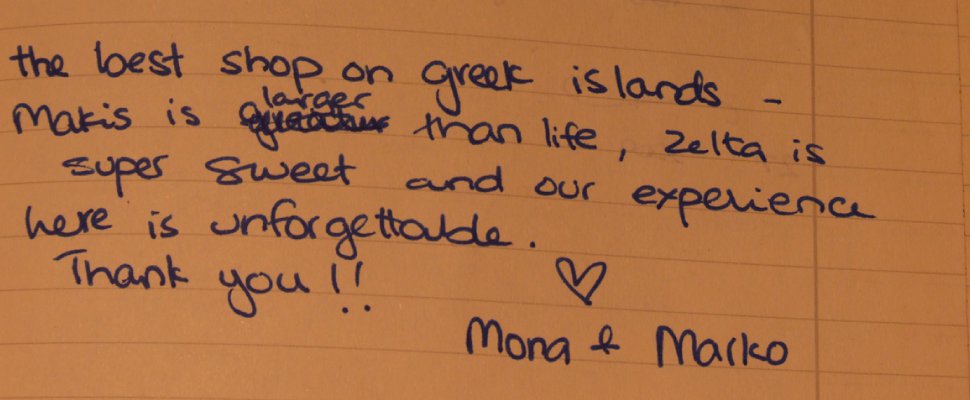 the best shop on greek islands -
Makis is larger than life, Zelta is
super sweet and our experience
here is unforgettable.
Thank you!!
Mona & Marko